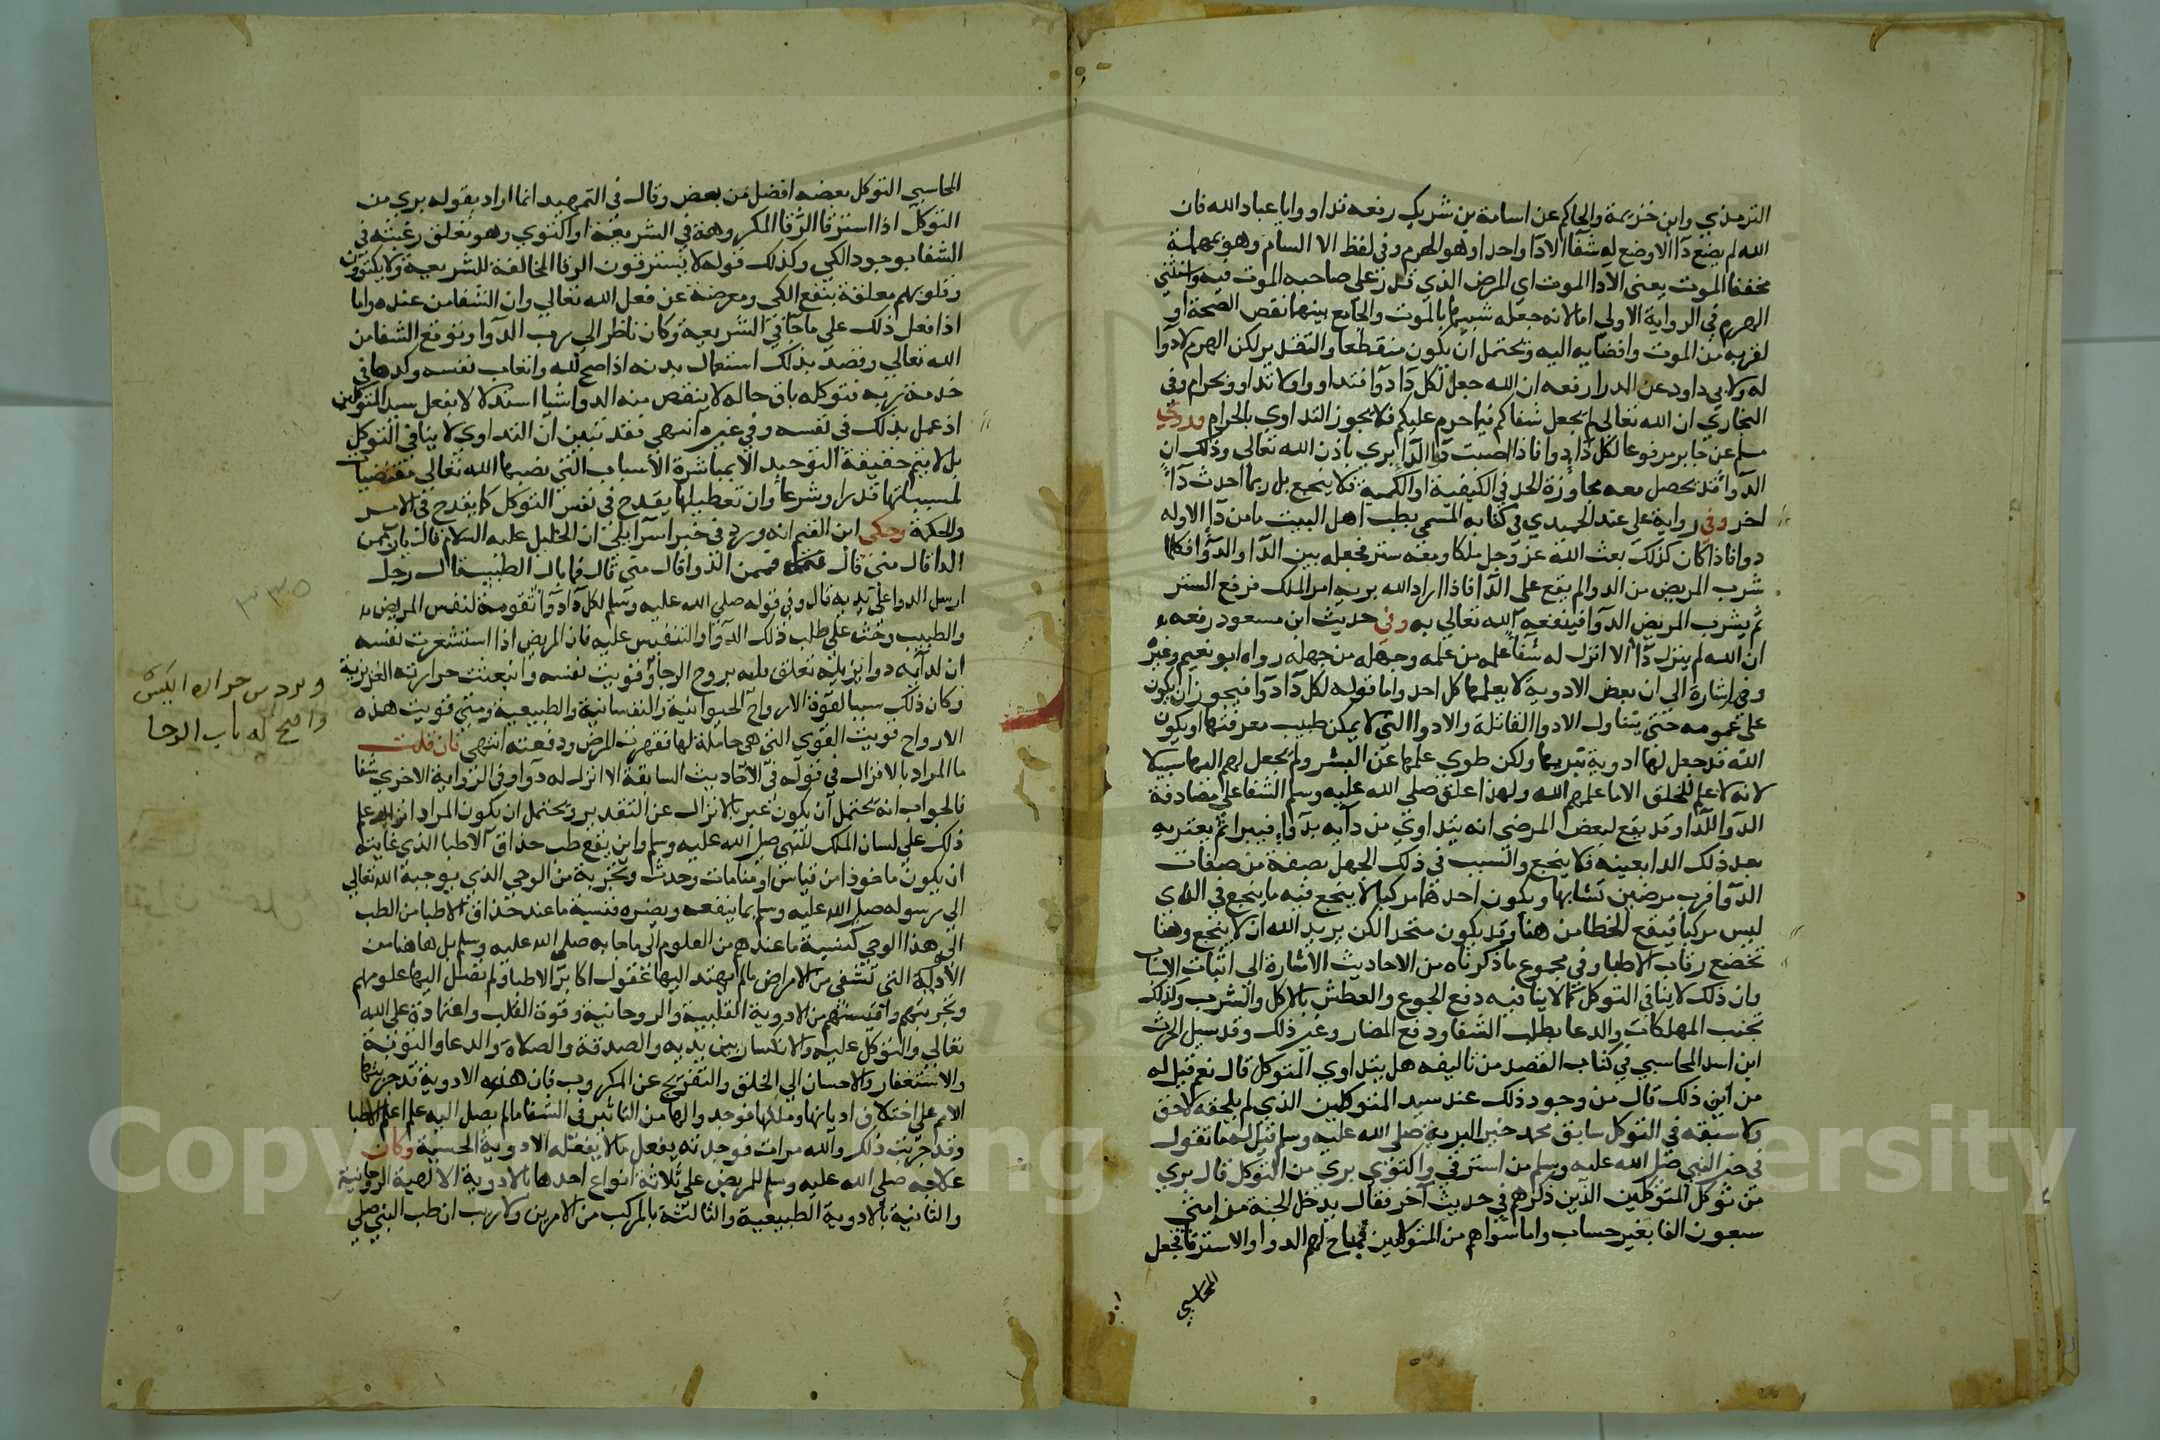 الترمذي وابن خزيمة والحاكم عن اسامة بن شريك رفعه تداووا يا عباد الله فان
الله لم يضع دآ الا وضع له شفآ الا دآ واحدا وهو الهرم وفي لفظ الا السام وهو بمهملة
مخففا الموت يعنى الا دا الموت اي المرض الذي قدر على صاحبه الموت فيه واستثني
الهرم في الرواية الاولي اما لانه جعله شبيها بالموت والجامع بينهما نقص الصحة او
لقربه من الموت وافضايه اليه ويحتمل ان يكون منقطعا والتقدير لكن الهرم لا دوآ
له ولابي داود عن الدرا رفعه ان الله جعل لكل دآ دوآ فتداووا ولا تداووا بحرام وفي
البخاري ان الله تعالى لم يجعل شفاكم فيما حرم عليكم فلا يجوز التداوي بالحرام وروي
مسلم عن جابر مرفوعا لكل دآ دوا فاذا اصيب دوآ الدآ بري باذن الله تعالى وذلك ان
الدوآ قد يحصل معه مجاوزة الحد في الكيفية او الكمية فلا ينجع بل ربما احدث دآ
اخر وفي رواية على عند الحميدي في كتابه المسمي بطب اهل البيت ما من دآ الا وله
دوا فاذا كان كذلك بعث الله عز وجل ملكا ومعه ستر فجعله بين الدآ والدوآ فكلما
شرب المريض من الدوا لم يقع على الدآ فاذا اراد الله بريه امر الملك فرفع الستر
ثم يشرب المريض الدوآ فينفعه الله تعالى به وفي حديث ابن مسعود رفعه
ان الله لم ينزل دآ الا انزل له شفآ علمه من علمه وجهله من جهله رواه ابو نعيم وغيره
وفيه اشارة الي ان بعض الادوية لا يعلمها كل احد واما قوله لكل دآ دوآ فيجوز ان يكون
على عمومه حتى يتناول الادوا القاتلة والادوا التي لا يمكن طبيب معرفتها ويكون
الله قد جعل لها ادوية تبريها ولكن طوي علمها عن البشر ولم يجعل لهم اليها سبيلا
لانه لا علم للخلق الا ما علمهم الله ولهذا علق صلى الله عليه وسلم الشفا على مصادفة
الدوآ للدآ وقد يقع لبعض المرضي انه يتداوي من دآيه بدوآ فيبرا ثم يعتريه
بعد ذلك الدا بعينه فلا ينجع والسبب في ذلك الجهل بصفة من صفات
الدوآ فرب مرضين تشابها ويكون احدهما مركبا لا ينجع فيه ما ينجع في الذي
ليس مركبا فيقع الخطا من هنا وقد يكون متحدا لكن يريد الله ان لا ينجع وهنا
تخضع رقاب الاطبا وفي مجموع ما ذكرناه من الاحاديث الاشارة الى اثبات الاسباب
وان ذلك لا ينافي التوكل كما لا ينافيه دفع الجوع والعطش بالاكل والشرب وكذلك
تجنب المهلكات والدعا بطلب الشفا ودفع المضار وغير ذلك وقد سيل الحرث
ابن اسد المحاسبي في كتاب القصد من تاليفه هل يتداوي المتوكل قال نعم قيل له
من اين ذلك قال من وجود ذلك عند سيد المتوكلين الذي لم يلحقه لاحق
ولا سبقه في التوكل سابق محمد خير البرية صلى الله عليه وسلم قيل له ما تقول
في خبر النبي صلى الله عليه وسلم من استرقي واكتوي بري من التوكل قال بري
من توكل المتوكلين الذين ذكرهم في حديث آخر فقال يدخل الجنة من امتي
سبعون الفا بغير حساب واما سواهم من المتوكلين فمباح لهم الدوا والاسترقا فجعل
المحاسبي
المحاسبي التوكل بعضه افضل من بعض وقال في التمهيد انما اراد بقوله بري من
التوكل اذا استرقا الرقا المكروهة في الشريعة او اكتوي وهو تعلق رغبته في
الشفا بوجود الكي وكذلك قوله لا يسترقون الرقا المخالفة للشريعة ولا يكتوون
وقلوبهم معلقة بنفع الكي ومعرضة عن فعل الله تعالي وان الشفا من عنده واما
اذا فعل ذلك على ما جآ في الشريعة وكان ناظرا الي رب الدوآ وتوقع الشفا من
الله تعالي وقصد بذلك استعمال بدنه اذا صح لله واتعاب نفسه وكدها في
خدمة ربه فتوكله باق حاله لا ينقص منه الدوا شيا استدلالا بفعل سيد المتوكلين
اذ عمل بذلك في نفسه وفي غيره انتهي فقد تبين ان التداوي لا ينافي التوكل
بل لا يتم حقيقة التوحيد الا بمباشرة الاسباب التي نصبها الله تعالى مقتضيات
لمسبباتها قدرا وشرعا وان تعطيلها يقدح في نفس التوكل كما يقدح في الامر
والحكمة وحكي ابن القيم انه ورد في خبر اسرآيلي ان الخليل عليه السلام قال يا رب ممن
الدا قال مني قال فممن الدوا قال مني قال فما بال الطبيب قال رجل
ارسل الدوا على يديه قال وفي قوله صلى الله عليه وسلم لكل دآ دوآ تقوية لنفس المريض
والطبيب وحث على طلب ذلك الدوآ والتفتيش عليه فان المريض اذا استشعرت نفسه
ان لدآيه دوا يزيله تعلق قلبه بروح الرجا وقويت نفسه وانبعثت حرارته الغريزية
وكان ذلك سببا لقوة الارواح الحيوانية والنفسانية والطبيعية ومتي قويت هذه
الارواح قويت القوي التي هي حاملة لها فقهرت المرض ودفعته انتهي فان قلت
ما المراد بالانزال في قوله في الاحاديث السابقة الا انزل له دوآ وفي الرواية الاخري شفا
فالجواب انه يحتمل ان يكون عبر بالانزال عن التقدير ويحتمل ان يكون المراد انزاله علم
ذلك على لسان الملك للنبي صلى الله عليه وسلم واين يقع طب حذاق الاطبا الذي غايته
ان يكون ماخوذا من قياس او منامات وحدس وتجربة من الوحي الذي يوحيه الله تعالي
الي رسوله صلى الله عليه وسلم بما ينفعه ويضره فنسبة ما عند حذاق الاطبا من الطب
الي هذا الوحي كنسبة ما عندهم من العلوم الي ما جا به صلى الله عليه وسلم بل هاهنا من
الادوية التي تشفي من الامراض ما لم يهتد اليها عقول اكابر الاطبا ولم تصل اليها علومهم
وتجربتهم واقيستهم من الادوية القلبية والروحانية وقوة القلب واعتماده على الله
تعالي والتوكل عليه والانكسار بين يديه والصدقة والصلاة والدعا والتوبة
والاستغفار والاحسان الي الخلق والتفريج عن المكروب فان هذه الادوية قد جربتها
الامم على اختلاف اديانها ومللها فوجدوا لها من التاثير في الشفا ما لم يصل اليه علم اعلم الاطبا
وقد جربت ذلك والله مرات فوجدته يفعل ما لا يفعله الادوية الحسية وكان
علاجه صلى الله عليه وسلم للمريض على ثلاثة انواع احدها بالادوية الالهية الروحانية
والثانية بالادوية الطبيعية والثالثة بالمركب من الامرين ولا ريب ان طب النبي صلي
٣٣٥
وبرد من حرارة
وافتح له باب الرجا
Copyright © King Saud University